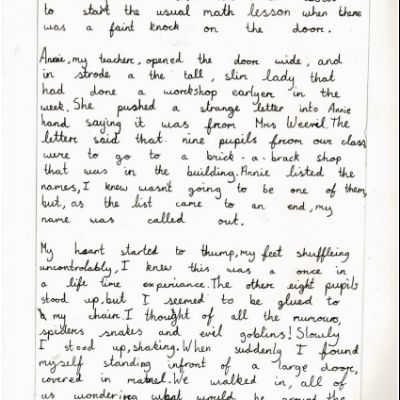 to start the usual math lesson when there
was a faint knock on the door.
Annie, my teacher, opened the door wide, and
in strode a the tall, slim lady that
had done a workshop earlyer in the
week. She pushed a strange letter into Annie
hand saying it was from Mrs Weevil. The
letter said that nine pupils from our class
were to go to a brick-a-brack shop
that was in the building. Annie listed the
names, I knew wasnt going to be one of them,
but, as the list came to an end, my
name was called out.
My heart started to thump, my feet shuffleing
uncontrolably, I knew this was a once in
a life time experiance. The other eight pupils
stood up, but I seemed to be glued to
my chair. I thought of all the rumours,
spiders snakes and evil goblins! Slowly
I stood up, shaking. When suddenly I found
myself standing infront of a large door,
covered in We walked in, all of
us wondering what would be around the